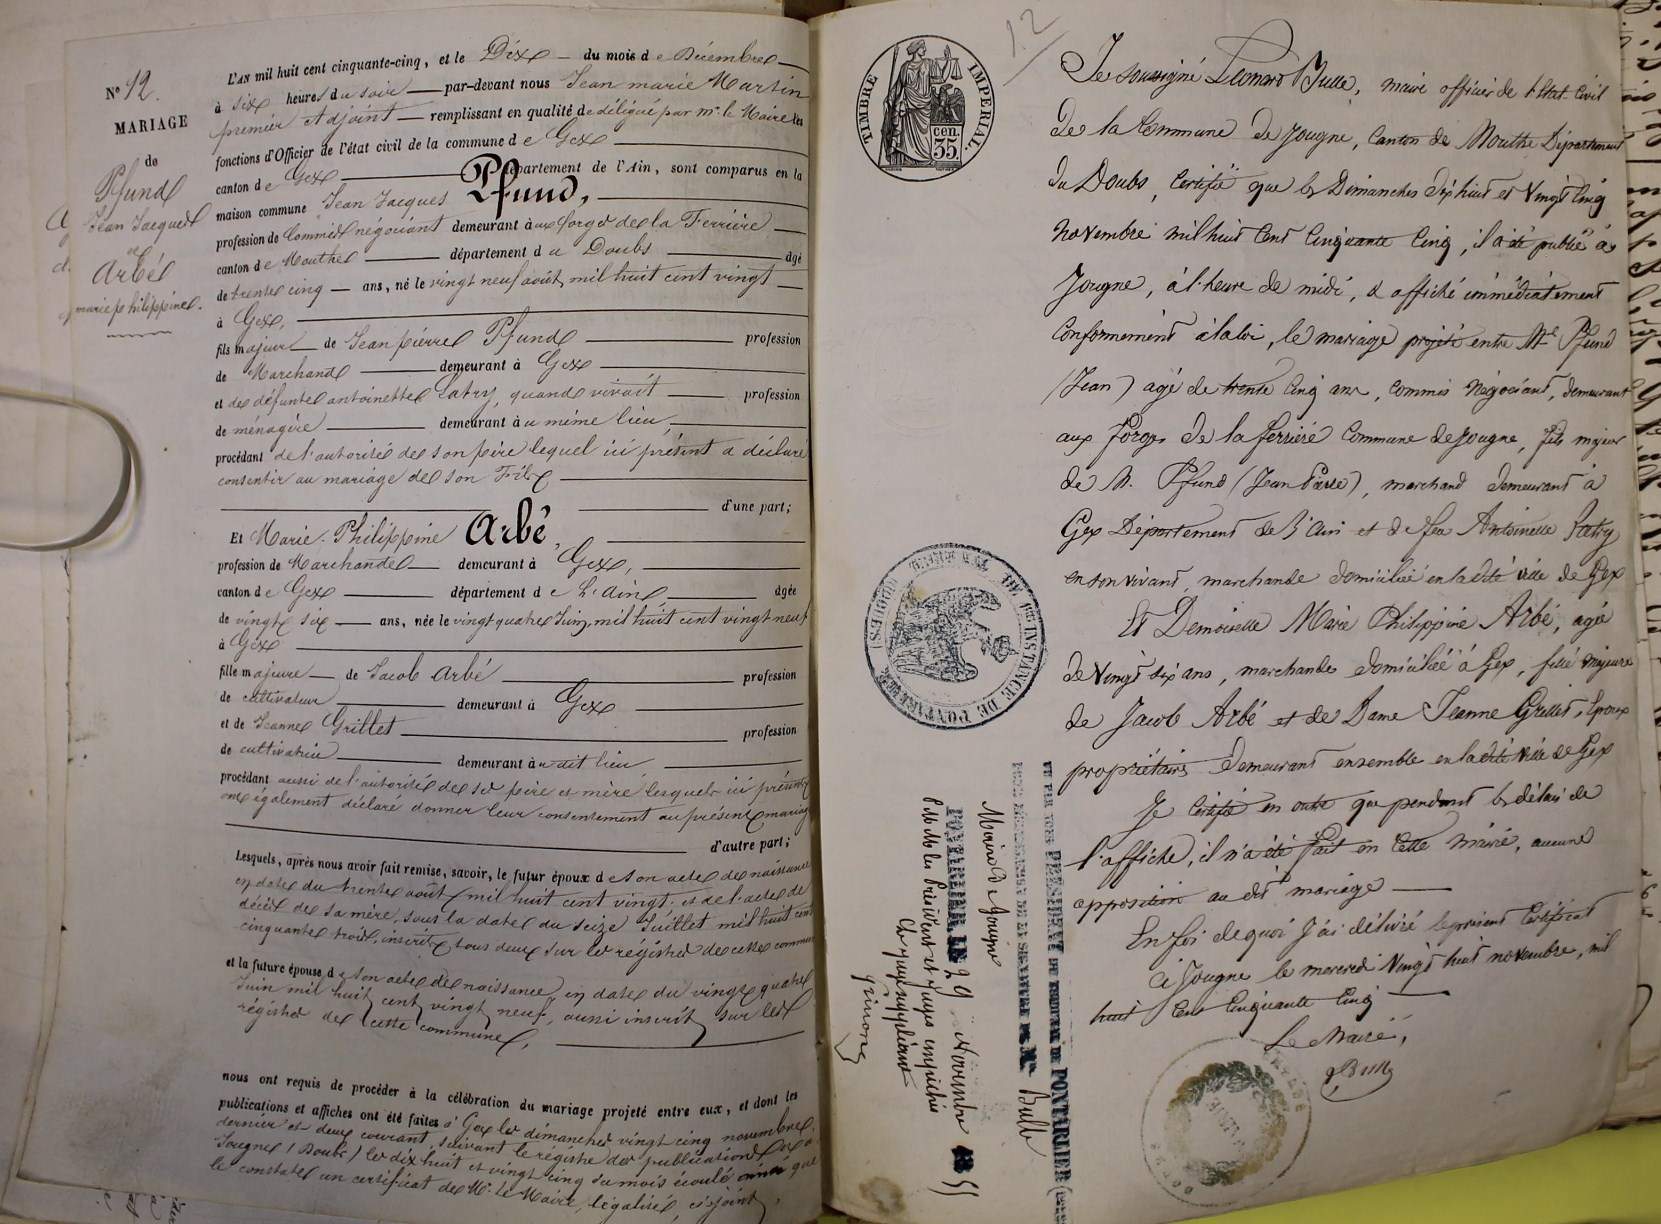 N° 12.
MARIAGE
de
Pfund
Jean Jacques
et
Arbé
marie philippine.
L'AN mil huit cent cinquante-cinq, et le Dix du mois de Décembre
à six heures du soir par-devant nous Jean marie Martin
premier adjoint remplissant en qualité de délégué par mr. le Maire les
fonctions d'Officier de l'état civil de la commune de Gex
canton de Gex département de l'Ain, sont comparus en la
maison commune Jean Jacques Pfund,
profession de Commis négociant demeurant aux forges de la Ferrière
canton de Mouthe département du Doubs âgé
de trente cinq ans, né le vingt neuf août, mil huit cent vingt
à Gex,
fils majeur de Jean pierre Pfund profession
de Marchand demeurant à Gex
et de défunte antoinette Patry, quand vivait profession
de ménagère demeurant au même lieu,
procédant de l'autorité de son père lequel ici présent a déclaré
consentir au mariage de son Fils
d'une part;
Et Marie Philippine Arbé,
profession de Marchande demeurant à Gex,
canton de Gex département de L'Ain âgée
de vingt six ans, née le vingt quatre Juin, mil huit cent vingt neuf
à Gex
fille majeure de Jacob Arbé profession
de cultivateur demeurant à Gex
et de Jeanne Grillet profession
de cultivatrice demeurant au dit lieu
procédant aussi de l'autorité de ses père et mère lesquels ici présents
ont également déclaré donner leur consentement au présent mariage
d'autre part;
Lesquels, après nous avoir fait remise, savoir, le futur époux de son acte de naissance
en date du trente août mil huit cent vingt et de l'acte de
décès de sa mère, sous la date du seize Juillet mil huit cent
cinquante trois, inscrits tous deux sur les registres de cette commune
et la future épouse, de son acte de naissance en date du vingt quatre
Juin mil huit cent vingt neuf, aussi inscrit sur les
registres de cette commune,
nous ont requis de procéder à la célébration du mariage projeté entre eux, et dont les
publications et affiches ont été faites à Gex les dimanches vingt cinq novembre
dernier et deux courant, suivant le registre des publications et à
Jougne (Doubs) les dix huit et vingt cinq du mois écoulé ainsi que
le constate un certificat de Mr. le Maire, légalisé, ci-joint,
12
TIMBRE IMPERIAL
35 cen.
Je soussigné Léonard Bulle, maire officier de l'état civil
de la Commune de Jougne, Canton de Mouthe Département
du Doubs, Certifie que les Dimanches dix huit et Vingt Cinq
novembre mil huit Cent Cinquante Cinq, il a été publié à
Jougne, à l'heure de midi, & affiché immédiatement
Conformément à la loi, le mariage projeté entre Mr. Pfund
(Jean) agé de trente Cinq ans, Commis Négociant, demeurant
aux forges de la ferrière Commune de Jougne, fils majeur
de M. Pfund (Jean Pierre), marchand demeurant à
Gex Département de l'Ain et de feu Antoinette Patry
en son vivant, marchande domiciliée en la dite ville de Gex
Et Demoiselle Marie Philippine Arbé, agée
de Vingt six ans, marchande domiciliée à Gex, fille majeure
de Jacob Arbé et de Dame Jeanne Grillet, Epoux
propriétaires demeurant ensemble en la dite ville de Gex
Je Certifie en outre que pendant les délais de
l'affiche, il n'a été fait en Cette mairie, aucune
opposition au dit mariage
En foi de quoi J'ai délivré le présent Certificat
à Jougne le mercredi Vingt huit novembre, mil
huit Cent Cinquante Cinq
Le Maire,
Bulle
DE 1RE INSTANCE DE PONTARLIER (DOUBS)
VU PAR NOUS PRÉSIDENT DU TRIBUNAL DE PONTARLIER
POUR LÉGALISATION DE LA SIGNATURE DE Mr Bulle
Maire de Jougne
PONTARLIER, LE 29 Novembre 1855
P. MM. les Président et Juges empêchés
Le juge suppléant